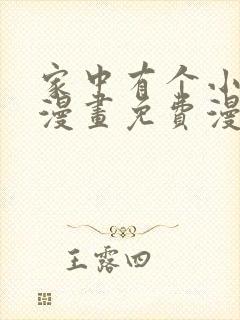 家中有个小
漫畫免費漫
王露四